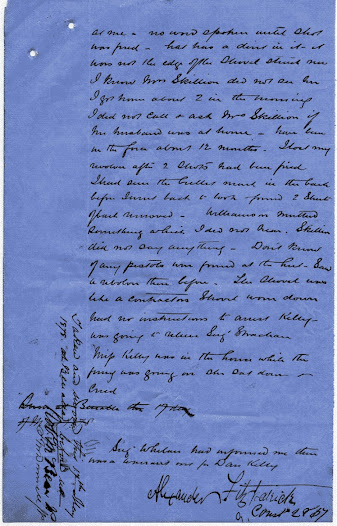 at me - no word spoken until shot
was fired - hat has a dent in it - it
was not the edge of the shovel struck me
I know Mrs Skillion did not see me
I got home about 2 in the morning
I did not call & ask Mrs Skillion if
her husband was at home - have been
in the force about 12 months - I lost my
revolver after 2 shots had been fired
I had seen the bullet mark in the bark
before I went back to look - found 2 sheets
of bark removed - Williamson muttered
something which I did not hear. Skillion
did not say anything - Don't know
of any pistols were found at the hut - Saw
a revolver there before. The shovel was
like a contractors shovel worn down
had no instructions to arrest Kelly -
was going to relieve Sergt Strachan
Miss Kelly was in the house while the
firing was going on She sat down &
cried
Sergt Whelan had informed me there
was a warrant out for Dan Kelly
Alexander Fitzpatrick
Const 2867
Taken and sworn this 17th day
1878 at Benalla before me